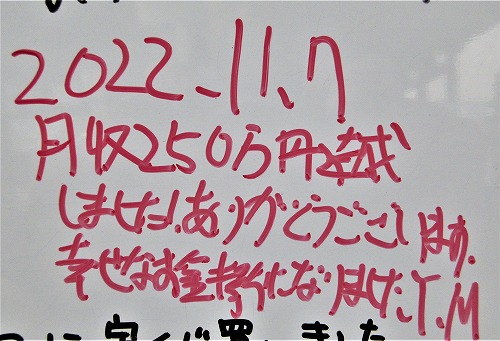 2022.11.7
月収250万円越
しました!ありがとうございます。
幸せなお金持ちになりました。T.M